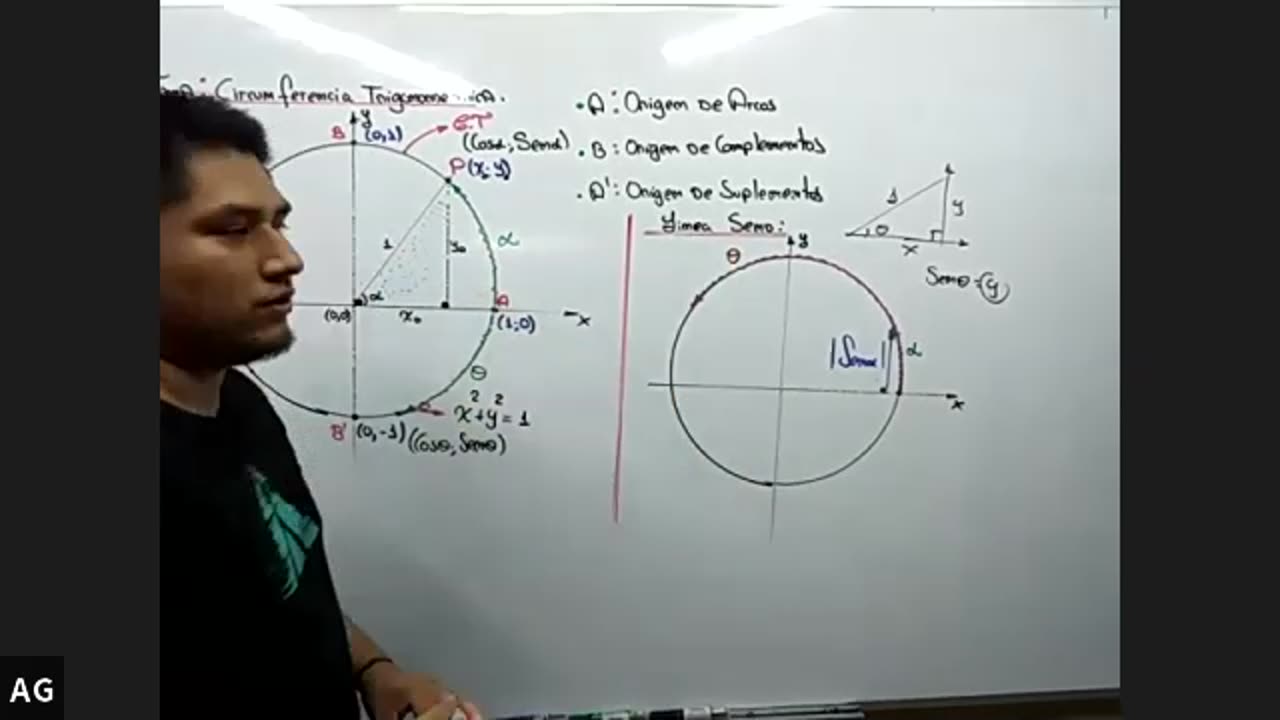 Circunferencia Trigonome
B (0,1)
y
C.T
(Cosα; Senα)
P(x; y)
1
y₀
α
α
(0;0)
x₀
A
(1;0)
x
θ
x² + y² = 1
B' (0,-1)
(Cosθ; Senθ)
• A : Origen de Arcos
• B : Origen de Complementos
• A' : Origen de Suplementos
Línea Seno:
y
θ
|Senα|
α
x
1
y
θ
x
Senθ = y
AG